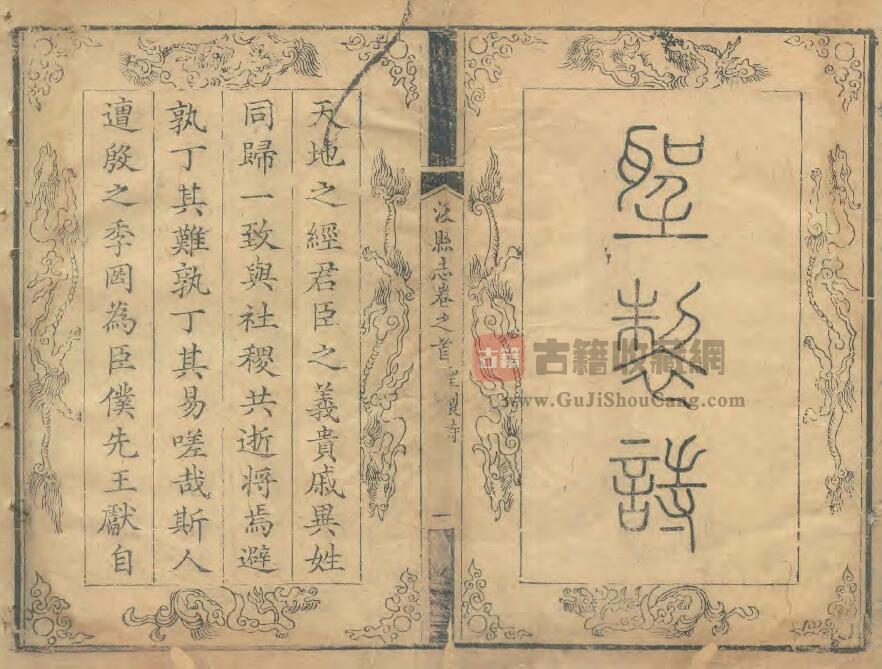 聖製詩
浚縣志卷之首
聖製詩
一
天地之經君臣之義貴戚異姓
同歸一致與社稷共逝將焉避
孰丁其難孰丁其易嗟哉斯人
遭殷之季罔為臣僕先王獻自
古籍
古籍收藏網
www.GuJiShouCang.com